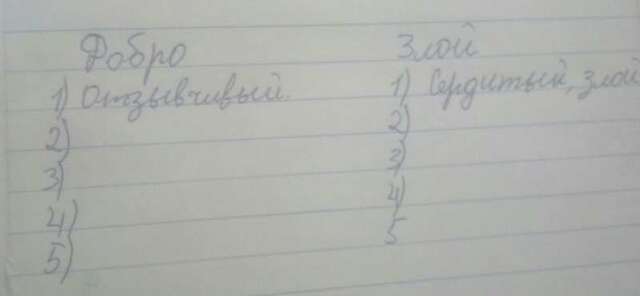 Добро Злой
1) Отзывчивый. 1) Сердитый, злой
2) 2)
3) 3)
4) 4)
5) 5